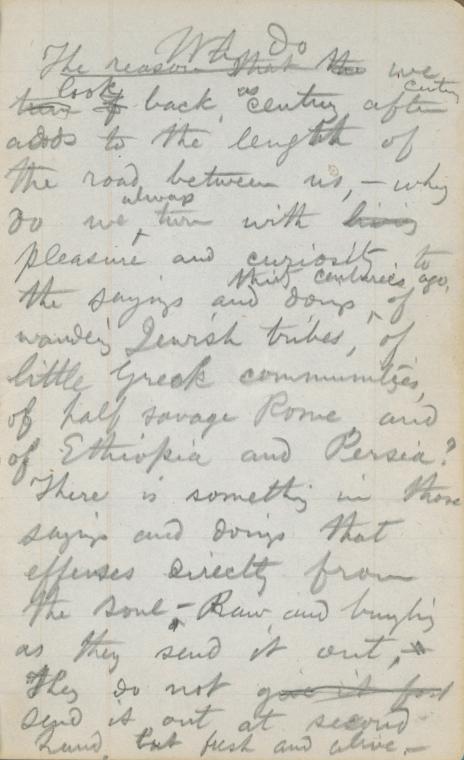 Why Do
The reason that the we
turn look back, as century after century
adds to the length of
the road between us, — why
do we always turn with living
pleasure and curiosity to
the sayings and doings, thirty centuries ago, of
wandering Jewish tribes, of
little Greek communities,
of half savage Rome, and
of Ethiopia and Persia?
There is something in those
sayings and doings that
effuses directly from
the soul — Raw and bungling
as they send it out, —
They do not give it for
send it out at second
hand, but fresh and alive, —